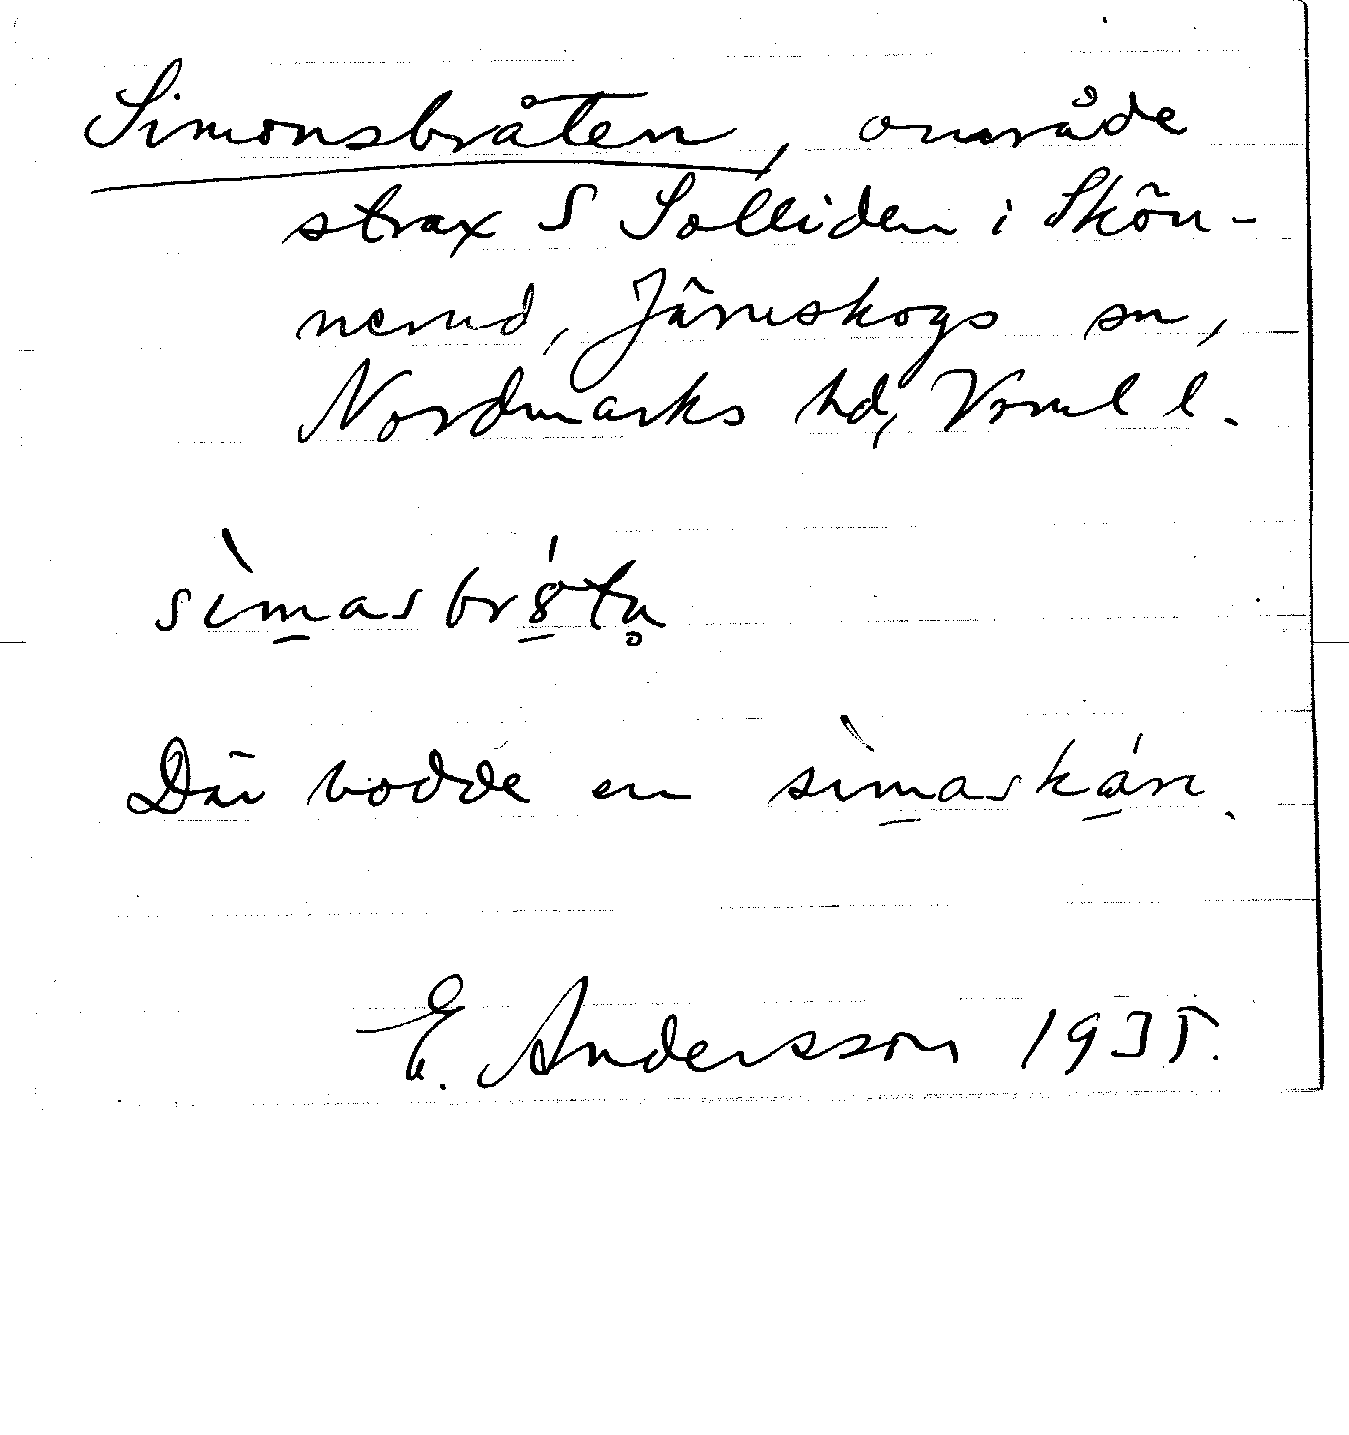 Simonsbråten, område
strax S Solliden i Skön-
nerud, Järnskogs sn,
Nordmarks hd, Vrml l.
sìmasbr8́tn̥
Där bodde en sìmaskán.
E. Andersson 1935.